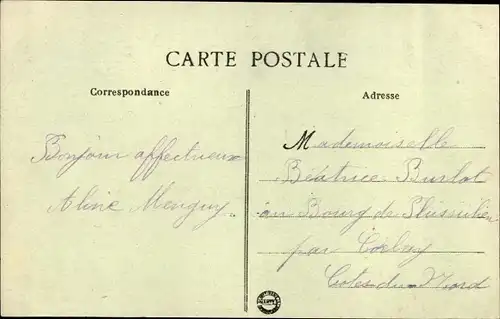 CARTE POSTALE
Correspondance
Adresse
Bonjour affectueux
Aline Menguy.
Mademoiselle
Béatrice Burlot
au Bourg de Plussulien
par Corlay
Cotes du Nord